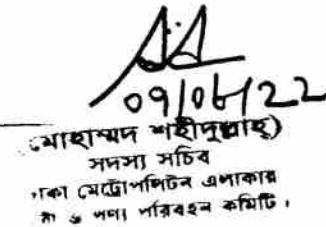 09/06/22
মোহাম্মদ শহীদুল্লাহ)
সদস্য সচিব
ঢাকা মেট্রোপলিটন এলাকার
ও পণ্য পরিবহন কমিটি।